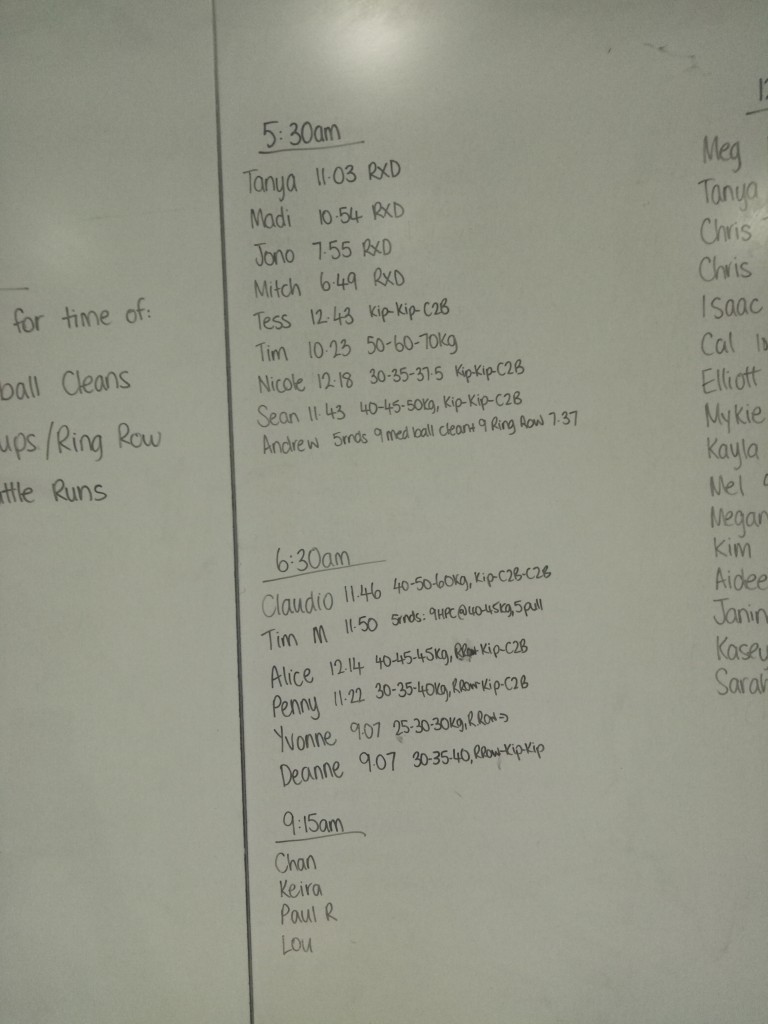 for time of:
ball Cleans
ups/Ring Row
ttle Runs
5:30am
Tanya 11.03 RXD
Madi 10.54 RXD
Jono 7.55 RXD
Mitch 6.49 RXD
Tess 12.43 Kip-Kip-C2B
Tim 10.23 50-60-70kg
Nicole 12.18 30-35-37.5 Kip-Kip-C2B
Sean 11.43 40-45-50kg, Kip-Kip-C2B
Andrew 5rnds 9 med ball clean+ 9 Ring Row 7.37
6:30am
Claudio 11.46 40-50-60kg, Kip-C2B-C2B
Tim M 11.50 5rnds: 9HPC@40-45kg, 5pull
Alice 12.14 40-45-45kg, Kip-C2B
Penny 11.22 30-35-40kg, RRow-Kip-C2B
Yvonne 9.07 25-30-30kg, R.Row→
Deanne 9.07 30-35-40, RRow-Kip-Kip
9:15am
Chan
Keira
Paul R
Lou
12
Meg
Tanya
Chris
Chris
Isaac
Cal
Elliott
Mykie
Kayla
Mel
Megan
Kim
Aidee
Janin
Kasey
Sarah